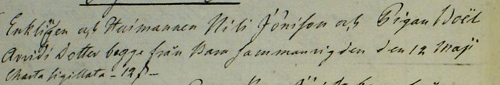 Enklingen och Husmannen Nils Jönison och Pigan Boël
Arvids Dotter begge från Dam sammanvigden den 12 Maji
Charta Sigillata - 12 s -